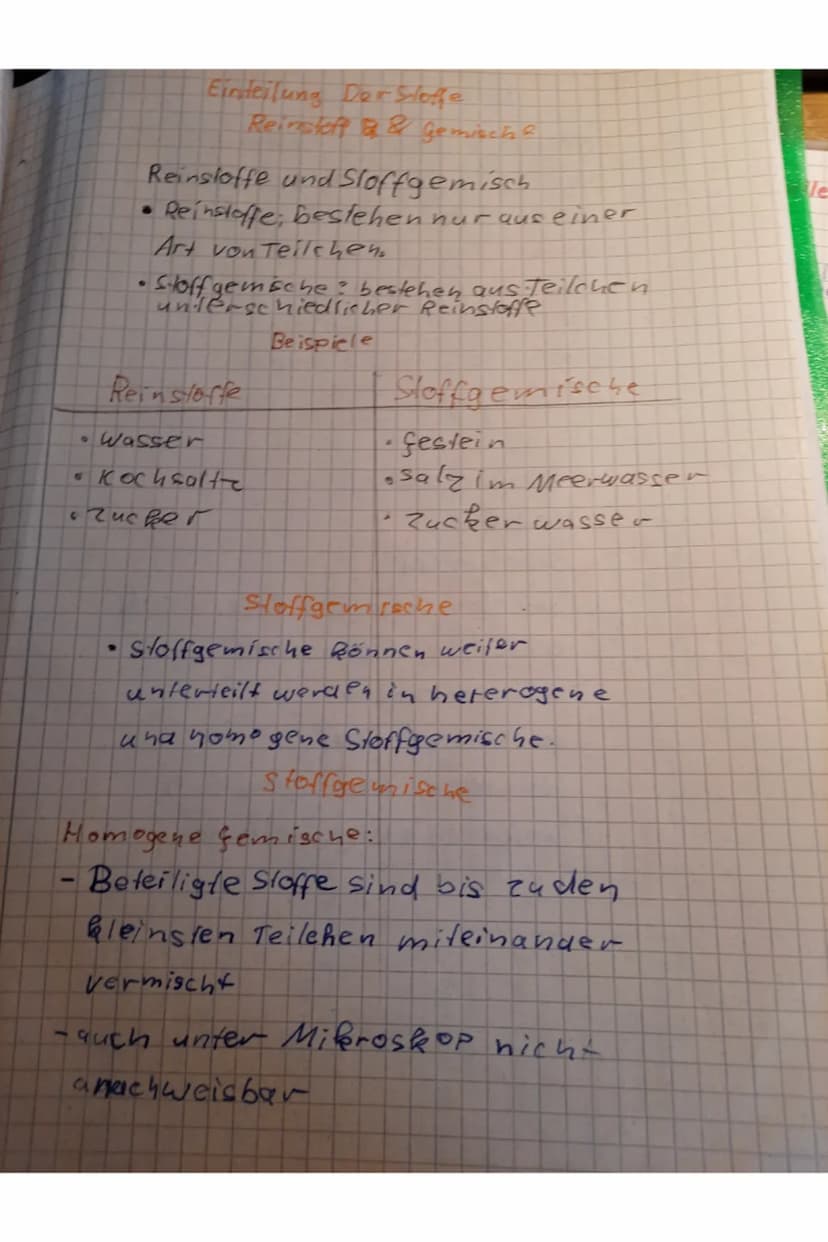 Einteilung Der Stoffe
Reinstoff & Gemische
Reinstoffe und Stoffgemisch
• Reinstoffe: bestehen nur aus einer
Art von Teilchen.
• Stoffgemische: bestehen aus Teilchen
unterschiedlicher Reinstoffe
Beispiele
Reinstoffe Stoffgemische
• Wasser • Gestein
• Kochsaltz • Salz im Meerwasser
• Zucker • Zuckerwasser
Stoffgemische
• Stoffgemische können weiter
unterteilt werden in heterogene
und homogene Stoffgemische.
Stoffgemische
Homogene Gemische:
- Beteiligte Stoffe sind bis zu den
kleinsten Teilchen miteinander
vermischt
- auch unter Mikroskop nicht